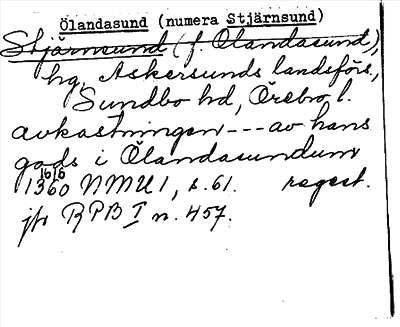 Ölandasund (numera Stjärnsund)
Stjärnsund (f. Ölandasund),
hg, Askersunds landsförs.,
Sundbo hd, Örebro l.
avkastningen --- av hans
gods i Ölandasundum
1360 16/6 NMU 1, s. 61. regest.
jfr RPB I n. 457.